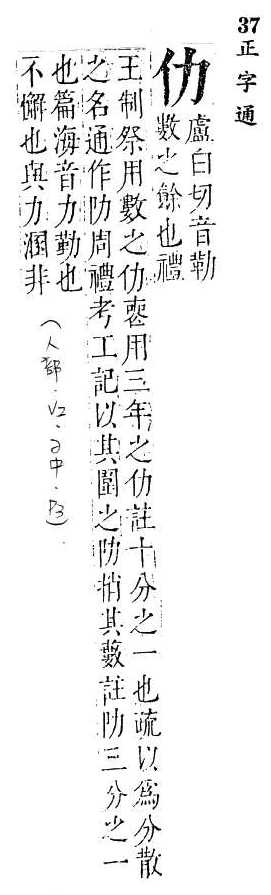 37正字通
仂
盧白切音勒
數之餘也禮
王制祭用數之仂喪用三年之仂註十分之一也疏以爲分散
之名通作阞周禮考工記以其圍之阞捎其藪註阞三分之一
也篇海音力勤也
不懈也與力溷非
(人部.